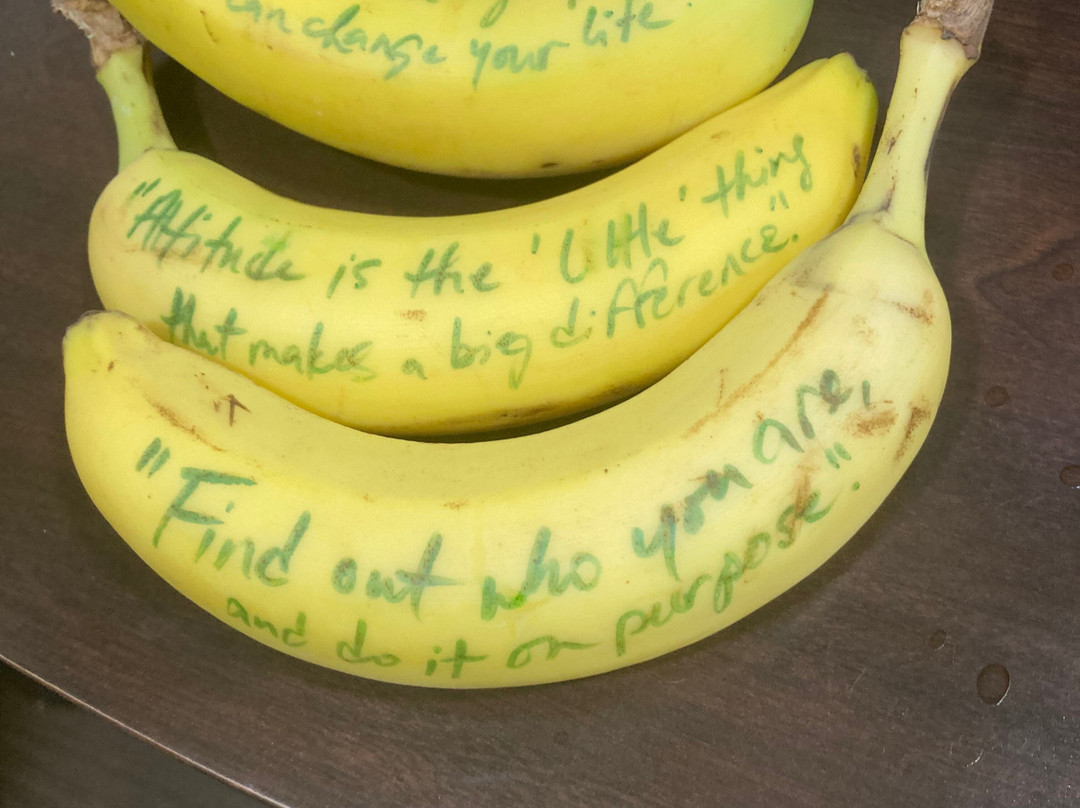 can change your life.
"Attitude is the 'Little' thing
that makes a big difference."
"Find out who you are,
and do it on purpose".